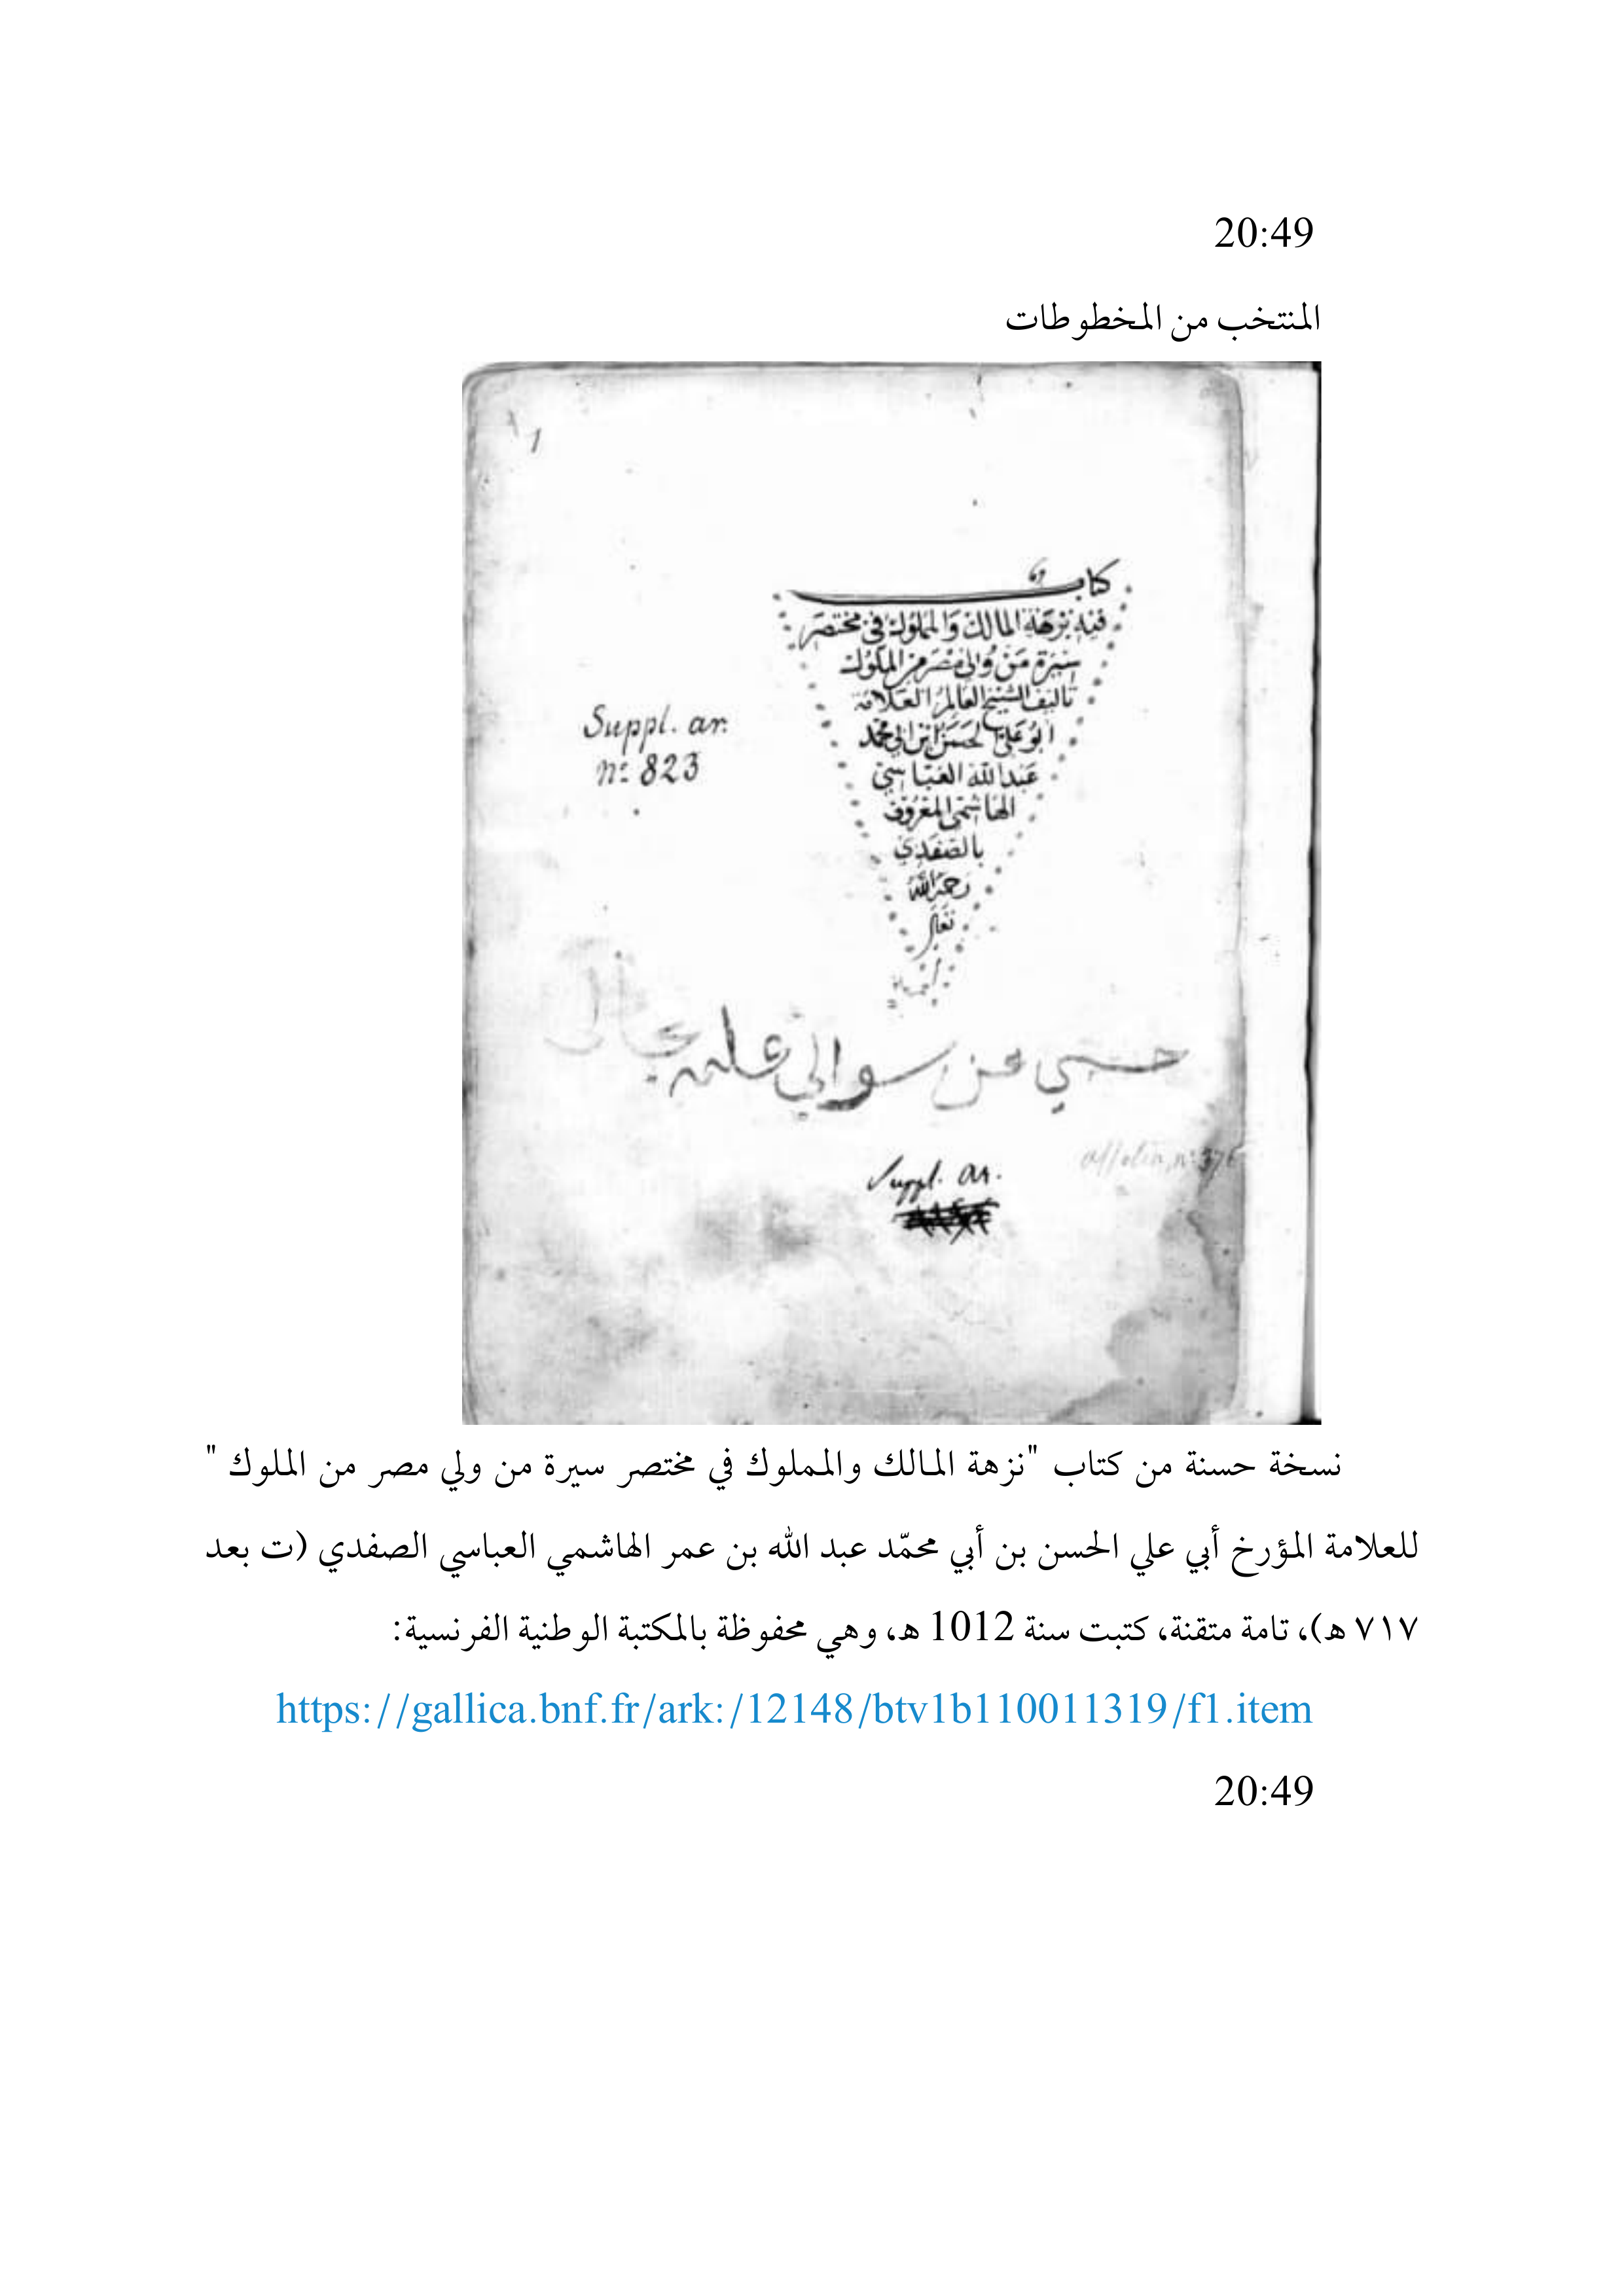 20:49
المنتخب من المخطوطات
1
كتاب
فيه نزهة المالك والمملوك في مختصر
سيرة من ولى مصر من الملوك
تاليف الشيخ العالم العلامة
ابو على الحسن ابن ابى محمد
عبد الله العباسي
الهاشمى المعروف
بالصفدي
رحمه الله
تعالى
Suppl. ar.
nº 823
حسبي عن سوالي علمه بحالي
Suppl. ar.
نسخة حسنة من كتاب "نزهة المالك والمملوك في مختصر سيرة من ولي مصر من الملوك "
للعلامة المؤرخ أبي علي الحسن بن أبي محمّد عبد الله بن عمر الهاشمي العباسي الصفدي (ت بعد
٧١٧ هـ)، تامة متقنة، كتبت سنة 1012 هـ، وهي محفوظة بالمكتبة الوطنية الفرنسية:
https://gallica.bnf.fr/ark:/12148/btv1b110011319/f1.item
20:49